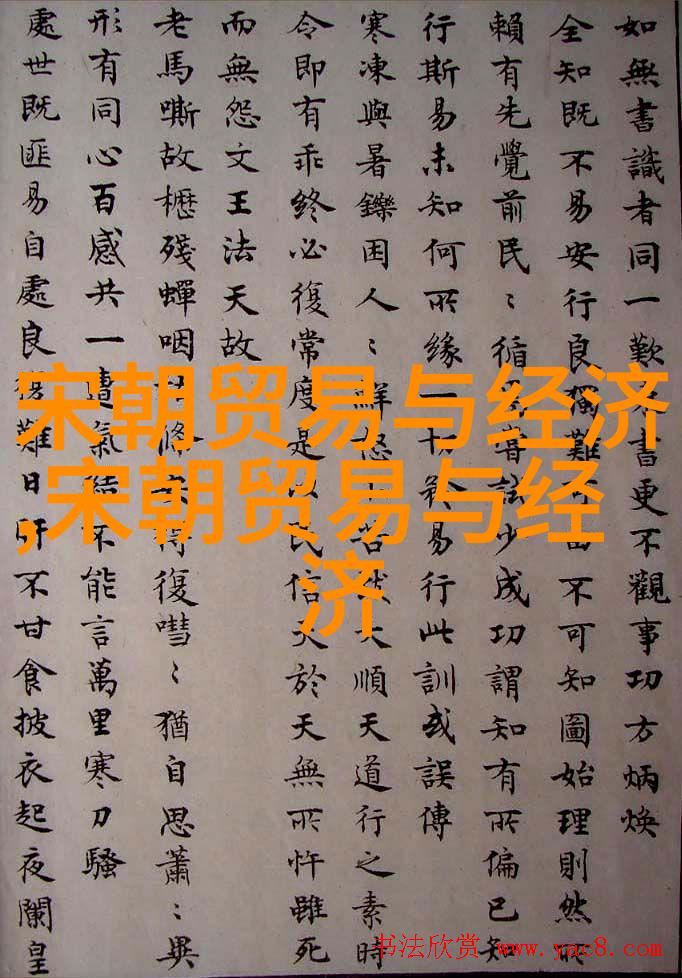 如無書識者同一歎書更不觀事功方炳煥
全知既不易安行良獨難不可知圖始理則然所
賴有先覺前民〻循嘗試少成功謂知有所偏已知
行斯易未知何所緣一切易行此訓或誤傳
寒凍與暑鑠困人〻鮮怨大順天道行之素時
令即有乖終必復常度是以民信天於天無所忤雖死
而無怨文王法天故
老馬嘶故櫪殘蟬咽得復嘒〻猶自思蕭〻異
形有同心百感共一遭氣結不能言萬里寒刀騷
處世既匪易自處良獨難日旰不甘食披衣起夜闌皇
宋朝贸易与经济
,宋朝贸易与经
济
书法欣赏 www.yac8.com